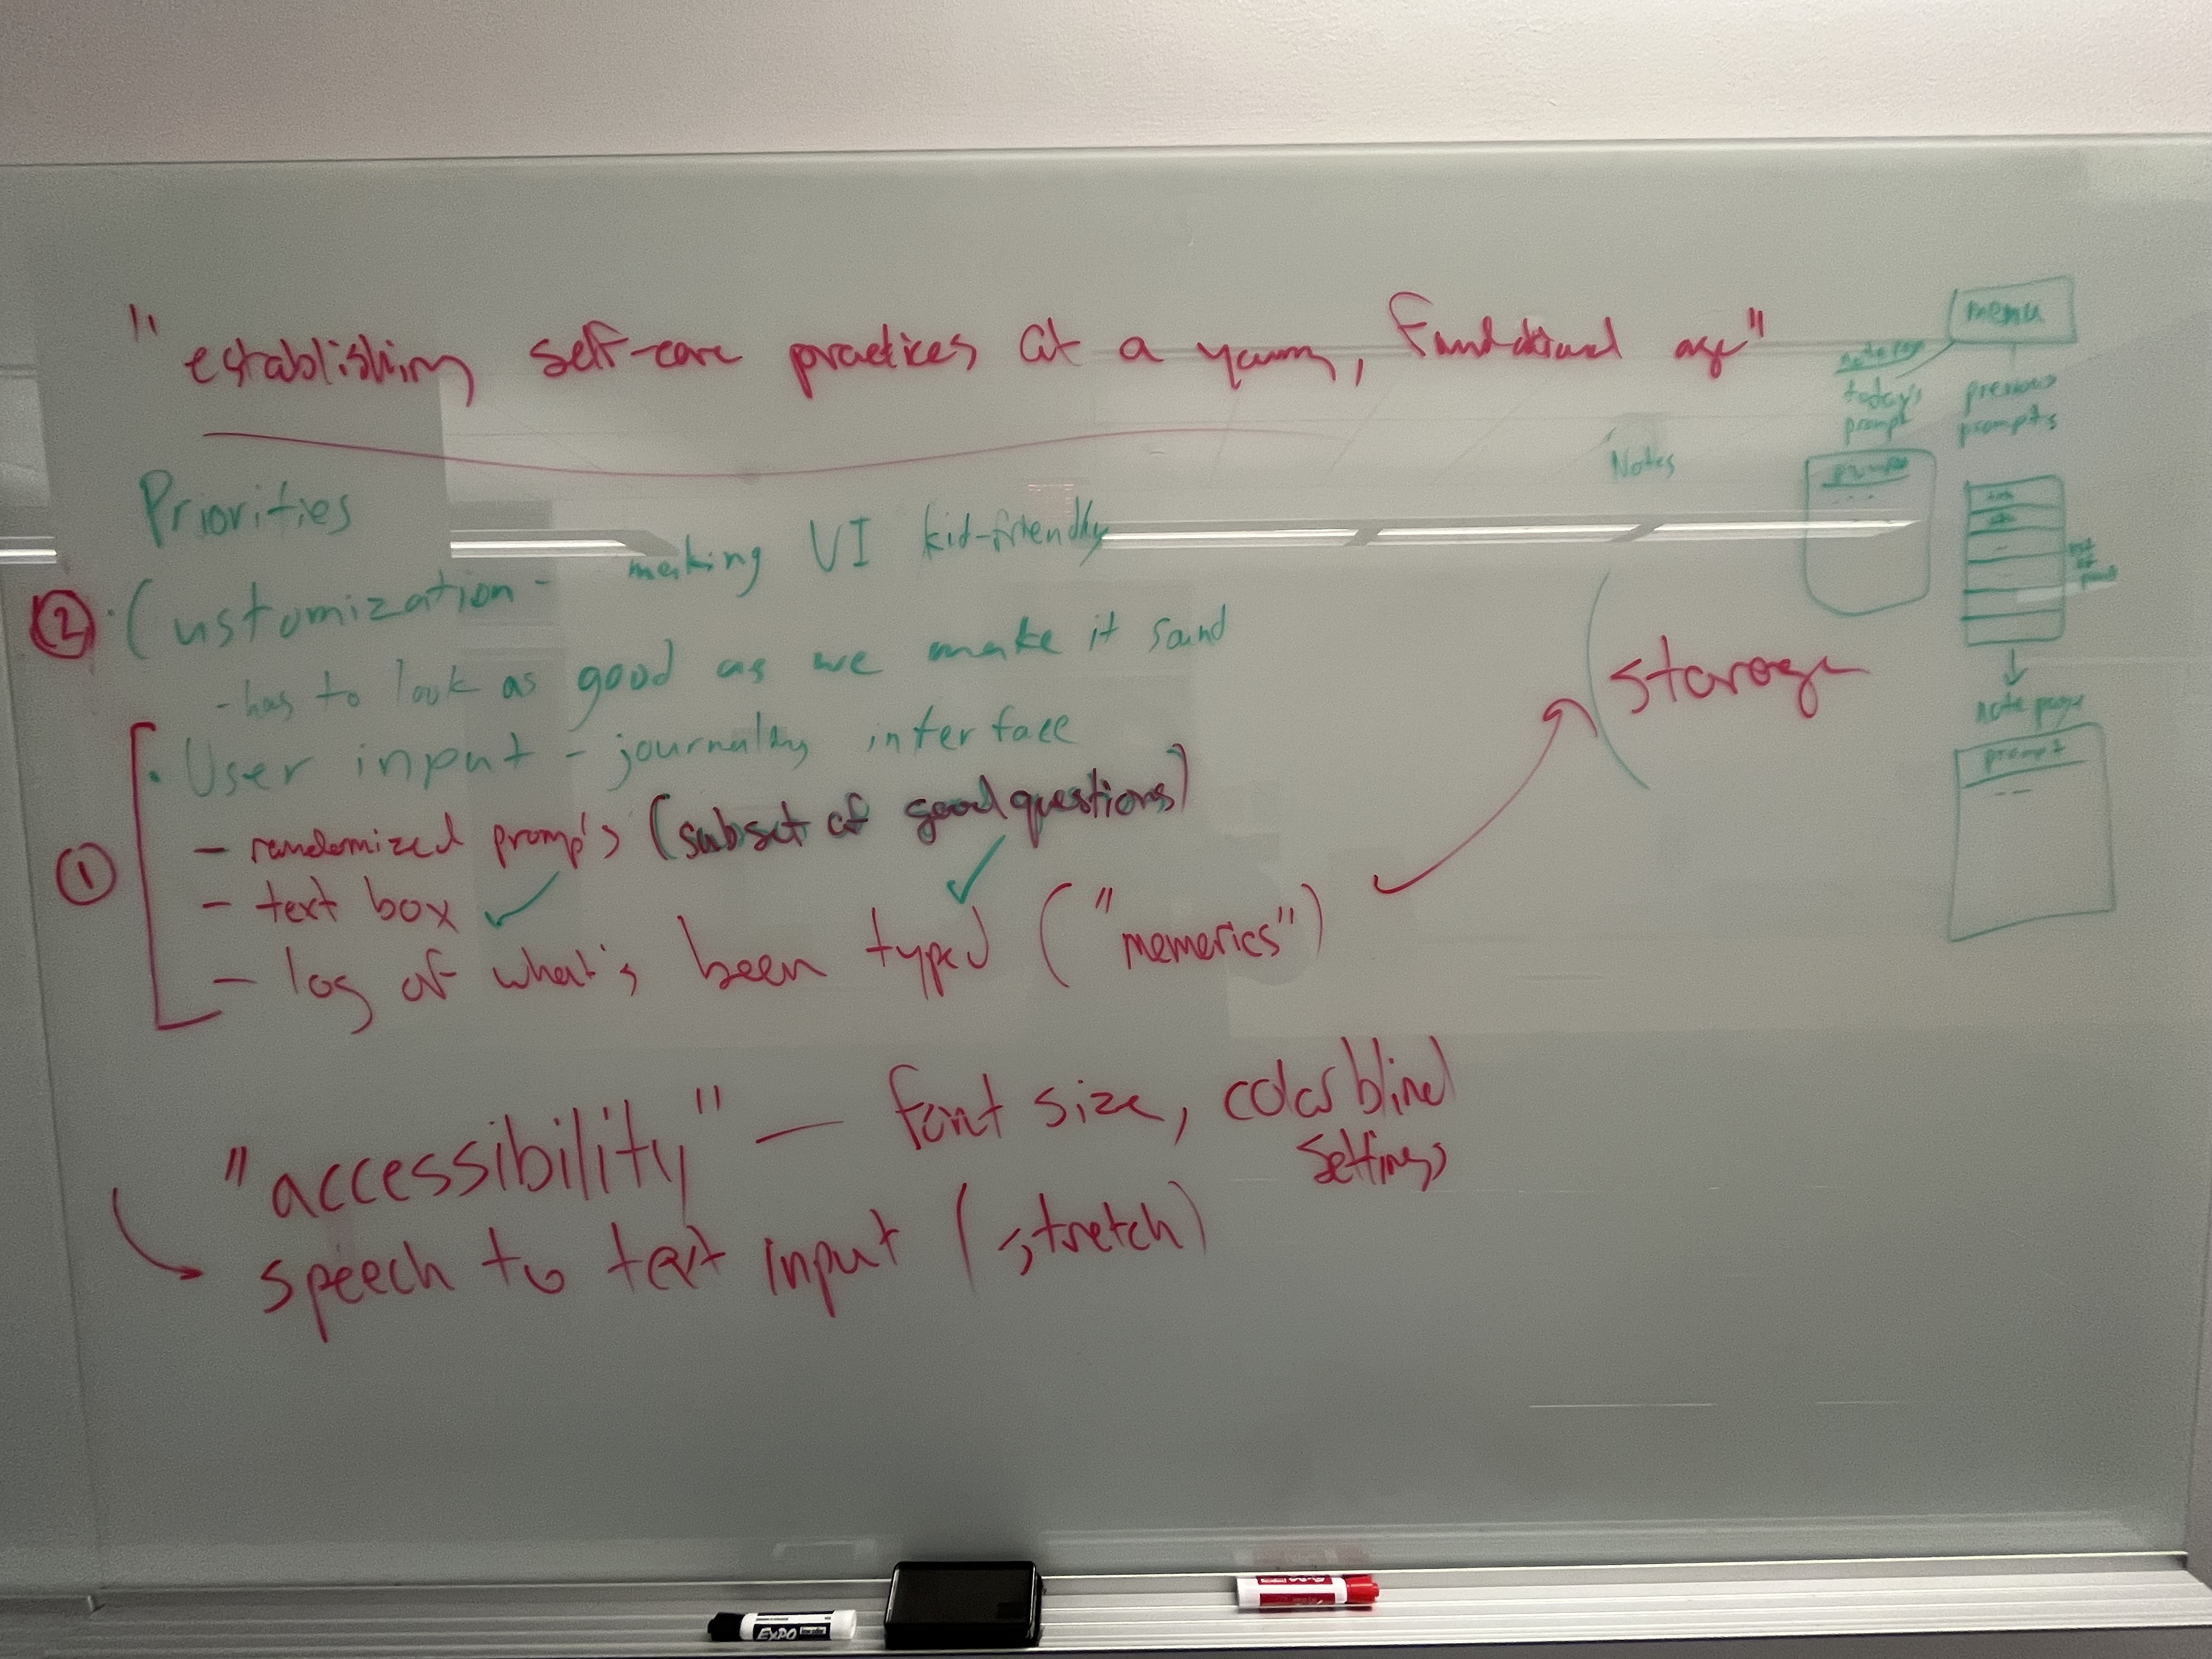 "establishing self-care practices at a young, foundational age"
Priorities
② · Customization - making UI kid-friendly
- has to look as good as we make it sound
① · User input - journaling interface
- randomized prompts (subset of good questions)
- text box ✓
- log of what's been typed ("memories") ✓
"accessibility" — font size, colorblind
settings
speech to text input (stretch)
Notes
storage
menu
today's
prompt
previous
prompts
note page
prompt
EXPO